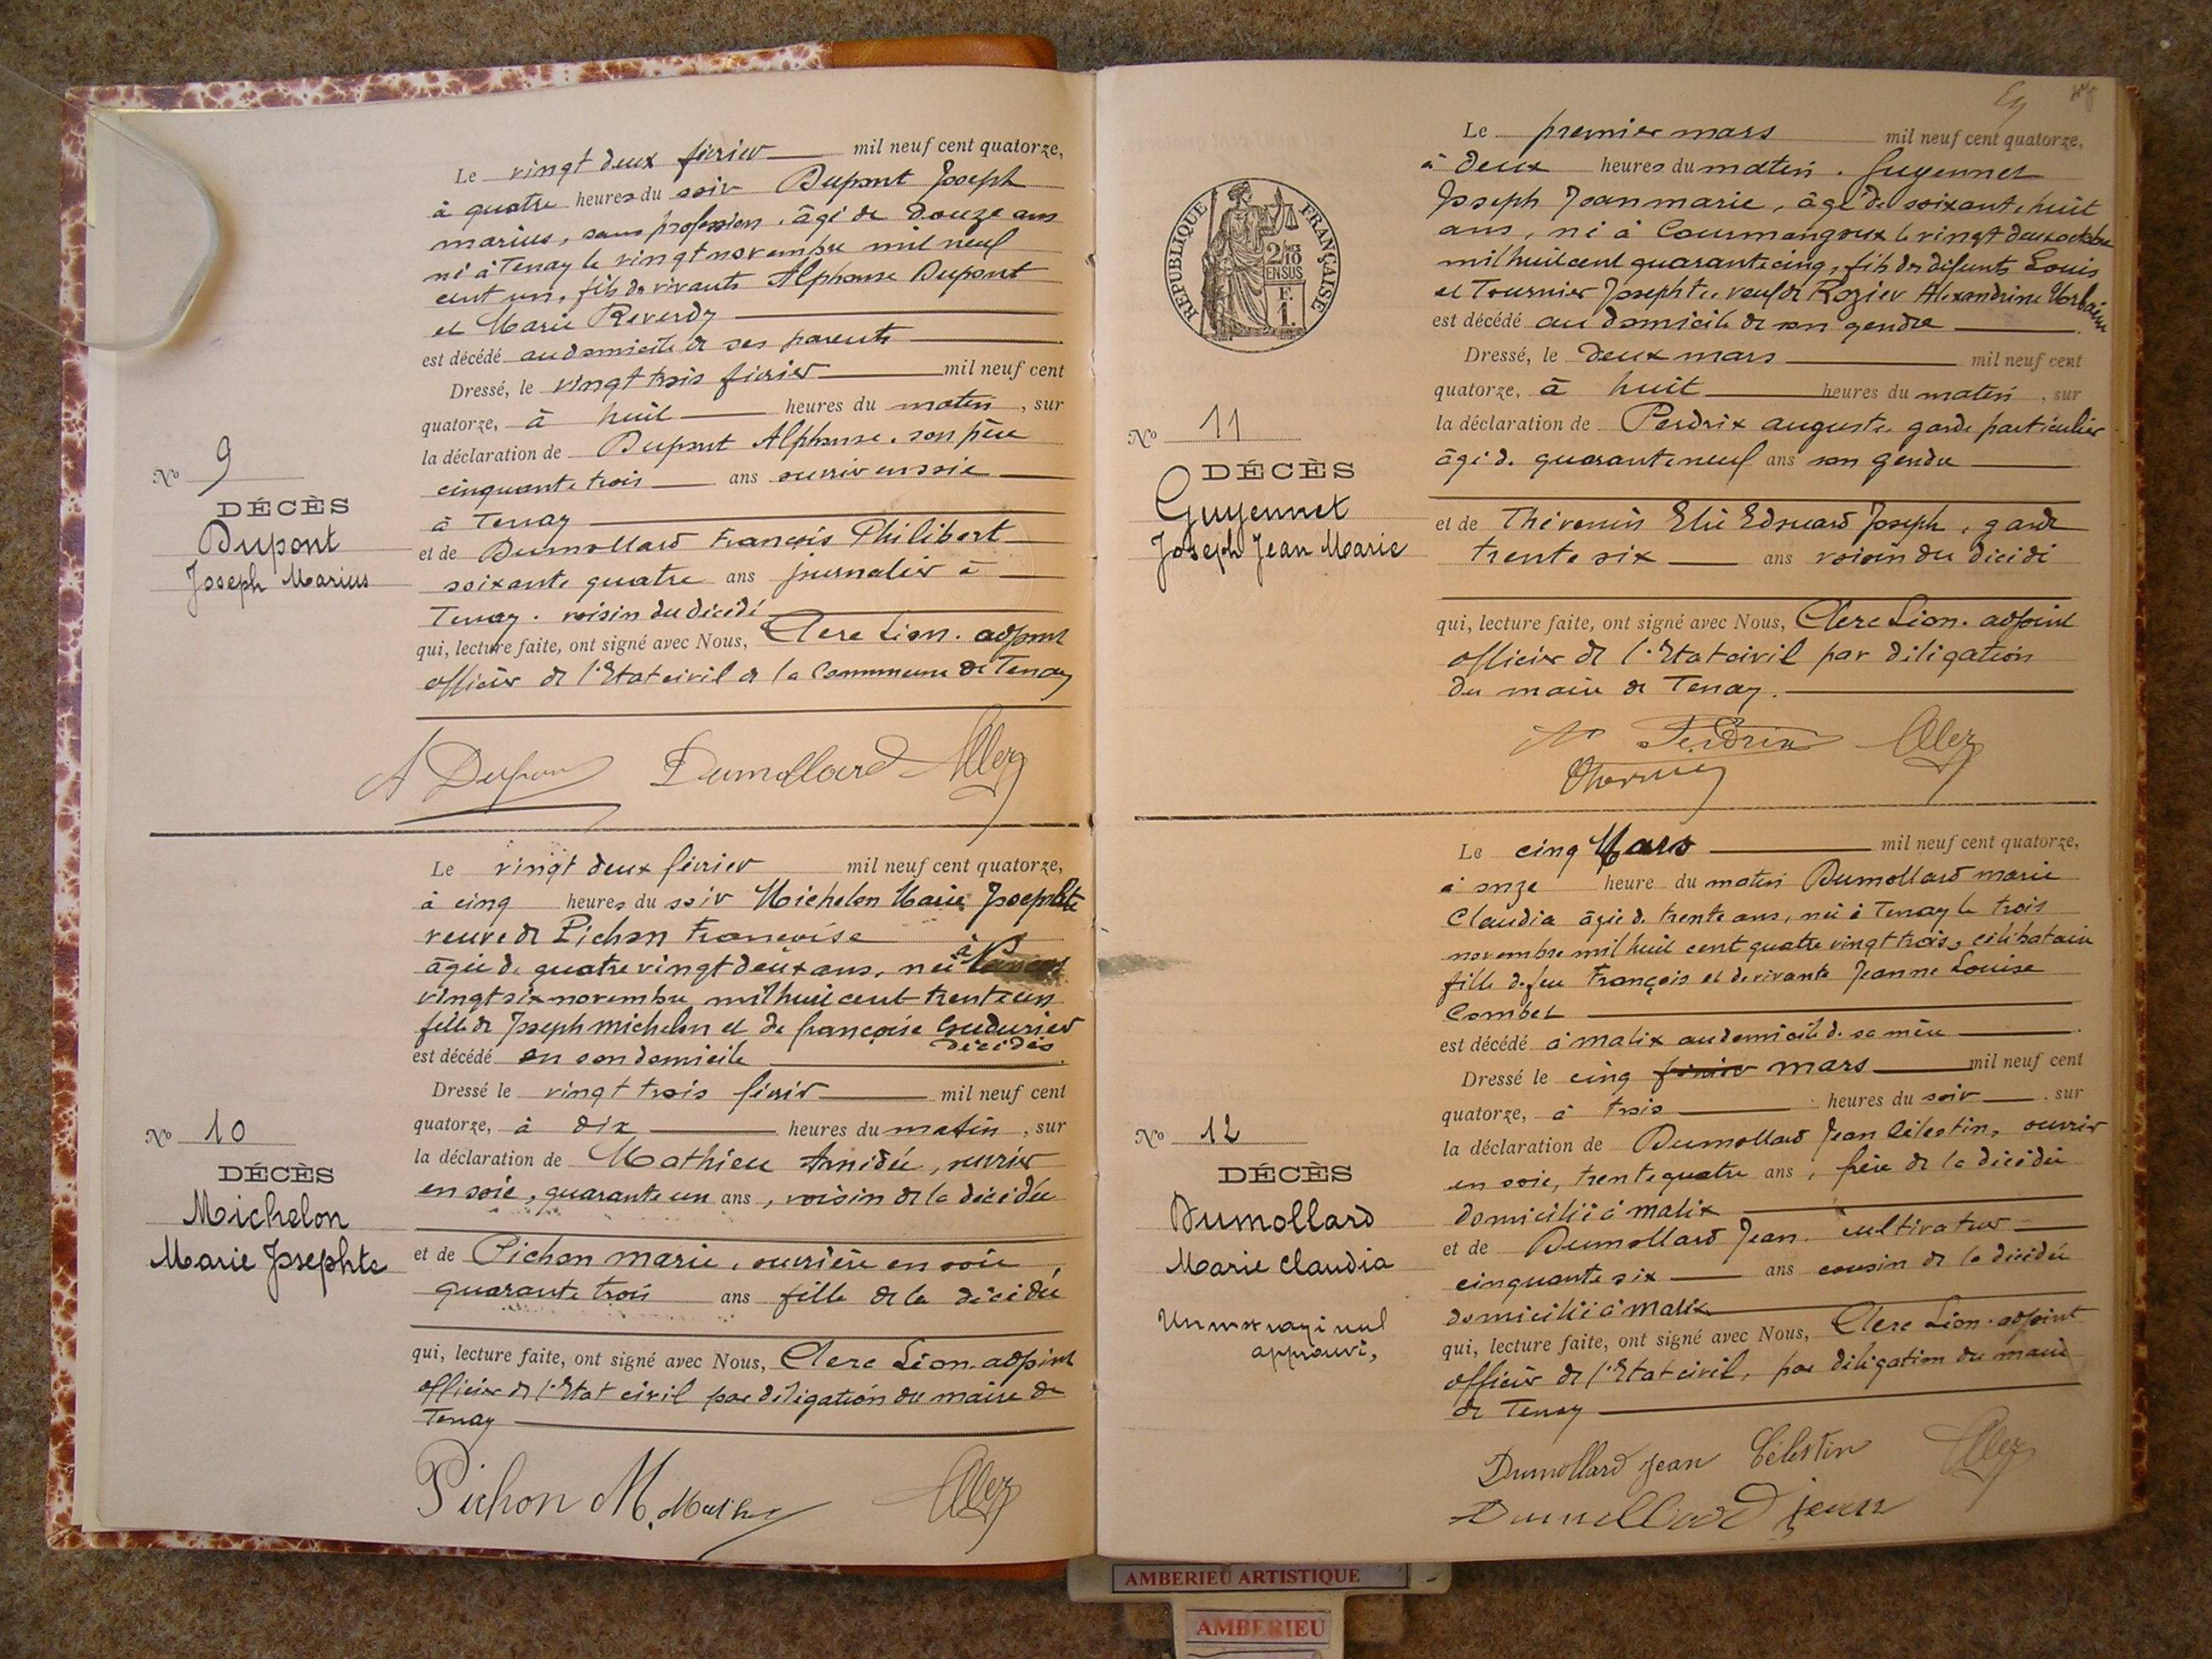 Le vingt deux février mil neuf cent quatorze,
à quatre heures du soir Dupont Joseph
marius, sans profession, âgé de douze ans
né à Tenay le vingt novembre mil neuf
cent un, fils de vivants Alphonse Dupont
et Marie Reverdy
est décédé au domicile de ses parents
Dressé, le vingt trois février mil neuf cent
quatorze, à huit heures du matin, sur
la déclaration de Dupont Alphonse, son père
cinquante trois ans ouvrier en soie
à Tenay
et de Dumollard François Philibert
soixante quatre ans journalier à
Tenay. voisin du décédé
qui, lecture faite, ont signé avec Nous, Clerc Léon. adjoint
officier de l'Etat civil de la Commune de Tenay
No 9
DÉCÈS
Dupont
Joseph Marius
A Dupont Dumollard
Le vingt deux février mil neuf cent quatorze,
à cinq heures du soir Michelon Marie Josephte
veuve de Pichon Françoise
âgée de quatre vingt deux ans, née à
vingt six novembre mil huit cent trente un
fille de Joseph Michelon et de françoise
décédés
est décédé en son domicile
Dressé le vingt trois février mil neuf cent
quatorze, à dix heures du matin, sur
la déclaration de Mathieu Amédée, ouvrier
en soie, quarante un ans, voisin de la décédée
et de Pichon marie, ouvrière en soie,
quarante trois ans fille de la décédée
qui, lecture faite, ont signé avec Nous, Clerc Léon. adjoint
officier de l'Etat civil par délégation du maire de
Tenay
No 10
DÉCÈS
Michelon
Marie Josephte
Pichon M.
Le premier mars mil neuf cent quatorze,
à deux heures du matin. Guyennet
Joseph Jean marie, âgé de soixante huit
ans, né à Courmangoux le vingt deux octobre
mil huit cent quarante cinq, fils des défunts Louis
et Tournier Josephte. veuf de Rozier Alexandrine
est décédé au domicile de son gendre
Dressé, le deux mars mil neuf cent
quatorze, à huit heures du matin, sur
la déclaration de Perdrix auguste, garde particulier
âgé de quarante neuf ans son gendre
et de Thévenin Elie Edouard Joseph, garde
trente six ans voisin du décédé
qui, lecture faite, ont signé avec Nous, Clerc Léon. adjoint
officier de l'Etat civil par délégation
du maire de Tenay.
RÉPUBLIQUE FRANÇAISE
2/10 EN SUS
F.
1.
No 11
DÉCÈS
Guyennet
Joseph Jean Marie
Perdrix
Le cinq Mars mil neuf cent quatorze,
à onze heure du matin Dumollard marie
Claudia âgée de trente ans, née à Tenay le trois
novembre mil huit cent quatre vingt trois, célibataire
fille de feu François et de vivante Jeanne Louise
Combet
est décédé à malix au domicile de sa mère
Dressé le cinq février mars mil neuf cent
quatorze, à trois heures du soir, sur
la déclaration de Dumollard Jean Célestin, ouvrier
en soie, trente quatre ans, frère de la décédée
domicilié à malix
et de Dumollard Jean. cultivateur
cinquante six ans cousin de la décédée
domicilié à malix
qui, lecture faite, ont signé avec Nous, Clerc Léon. adjoint
officier de l'Etat civil, par délégation du maire
de Tenay
No 12
DÉCÈS
Dumollard
Marie Claudia
Un mot rayé nul
approuvé,
Dumollard Jean Célestin
Dumollard jean
AMBERIEU ARTISTIQUE
AMBERIEU